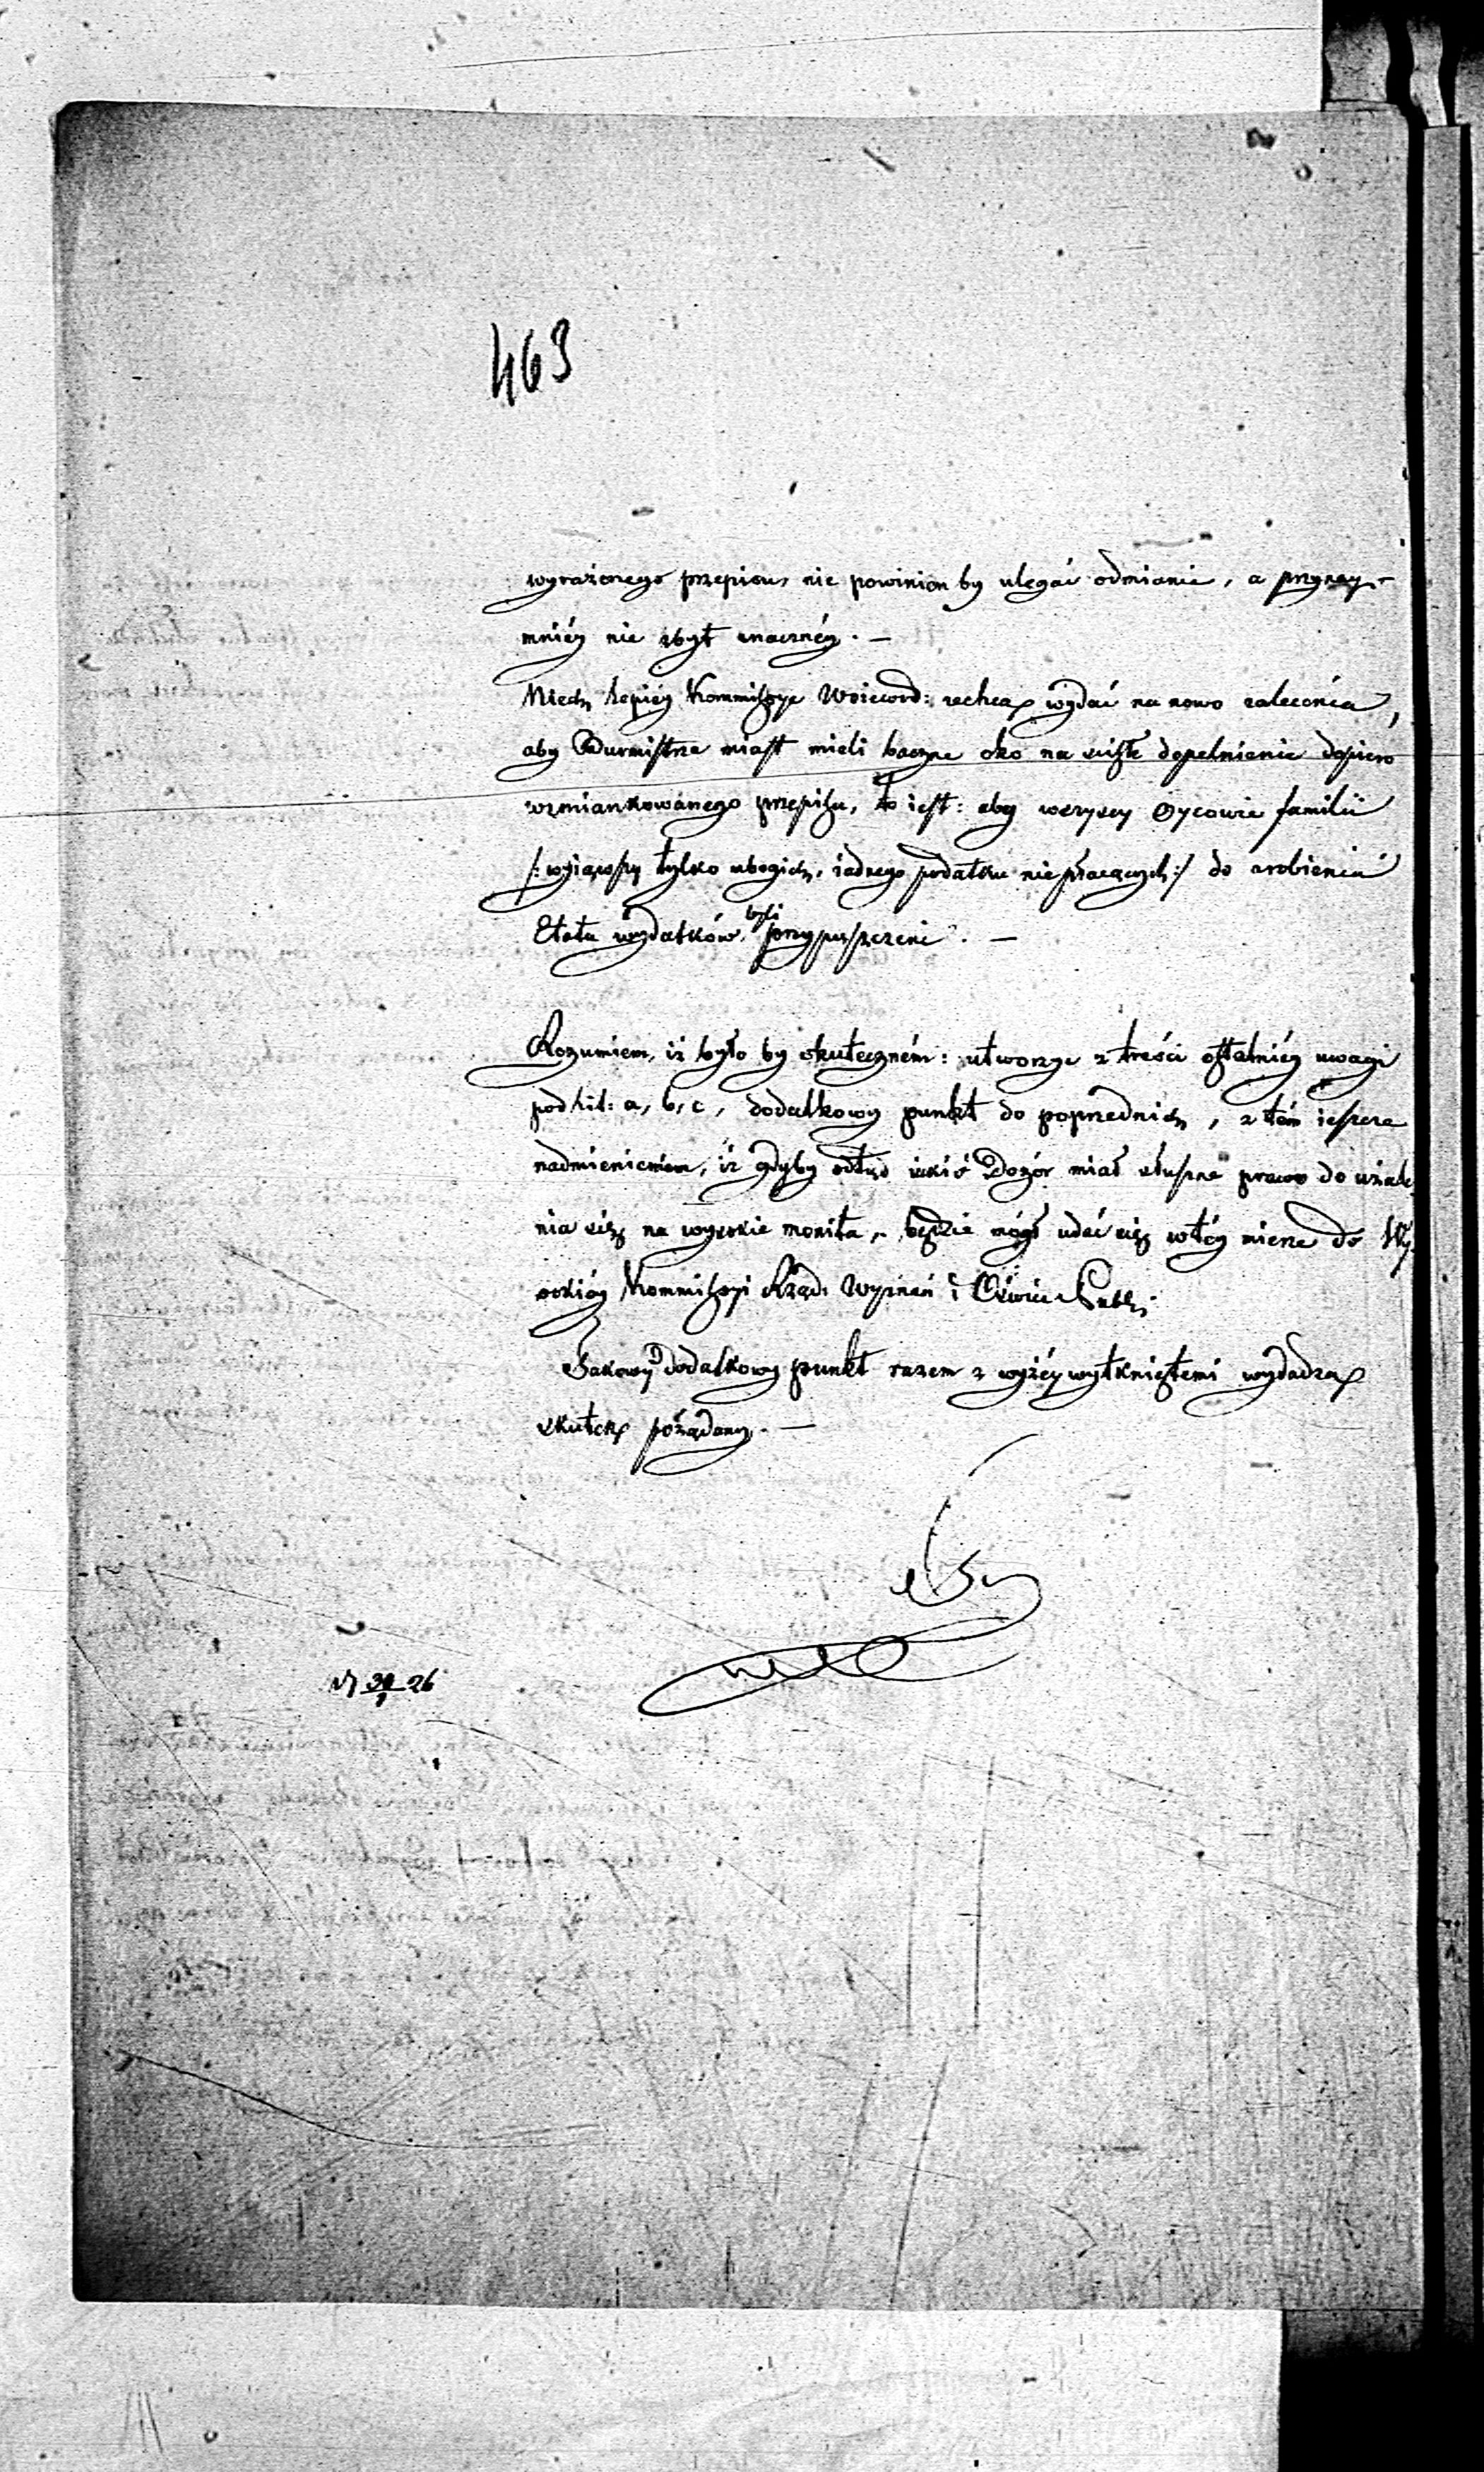 463
wyrażonego przepisu, nie powinien by ulegać odmianie, a przynay-
mniéy nie zbyt znacznéy. —
Niech lepiéy Kommissye Woiewod: zechcą wydać na nowo zalecenia,
aby Burmistrze miast mieli baczne oko na ścisłe dopełnienie dopiero
wzmiankowanego przepisu, to iest: aby wszyscy Oycowie familii
/: wyiąwszy tylko ubogich, żadnego podatku niepłacących :/ do zrobienia
Etatu wydatków, byli przypuszczeni. —
Rozumiem, iż było by skuteczném: utworzyć z treści ostatniéy uwagi
pod lit: a, b, c, dodatkowy punkt do poprzednich, z tém ieszcze
nadmienieniem, iż gdyby odtąd iakiś Dozór miał słuszne prawo do użale-
nia się na wszelkie monita, będzie mógł udać się w téy mierze do Wy-
sokiéy Kommissyi Rząd: Wyznań i Oświec: Publ:
Takowy dodatkowy punkt razem z wyżéy wytkniętemi wydadzą
skutek pożądany. —
26